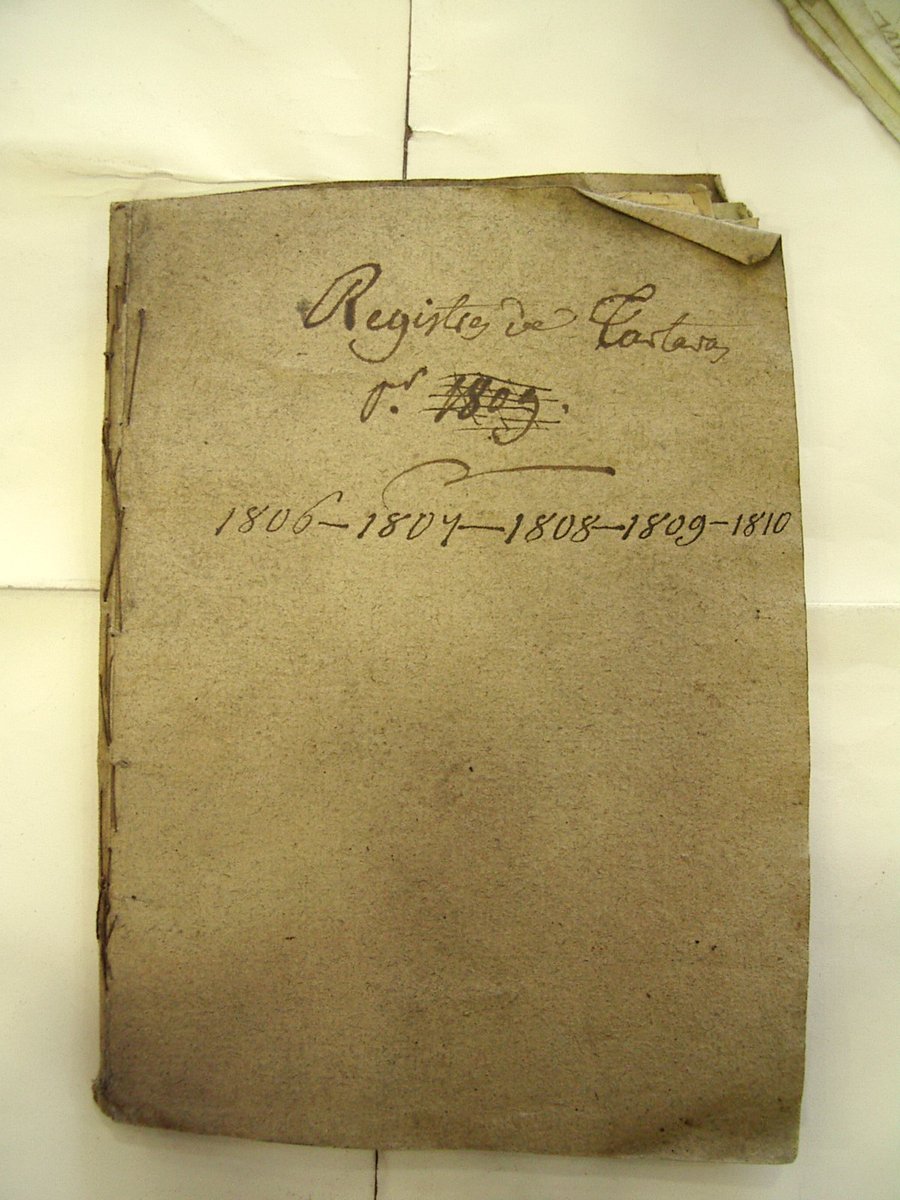 Registres de Tartaras
pr. 1809.
1806–1807–1808–1809–1810